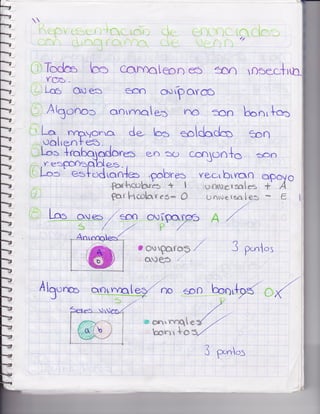 "Representación de enunciados
con diagrama de Venn"
① Todos los camaleones son insectívo
ros.
② Las aves son ovíparas
③ Algunos animales no son bonitos
④ La mayoría de los soldados son
valientes.
⑤ Los trabajadores en su conjunto son
responsables.
Los estudiantes pobres recibirán apoyo
particulares + I universales + A
particulares - O universales - E
② Las aves / son ovíparas A
S P
Animales
ovíparas 3 puntos
aves
Algunos animales no son bonitos O
S P
Seres vivos
a b animales
bonitos
3 puntos